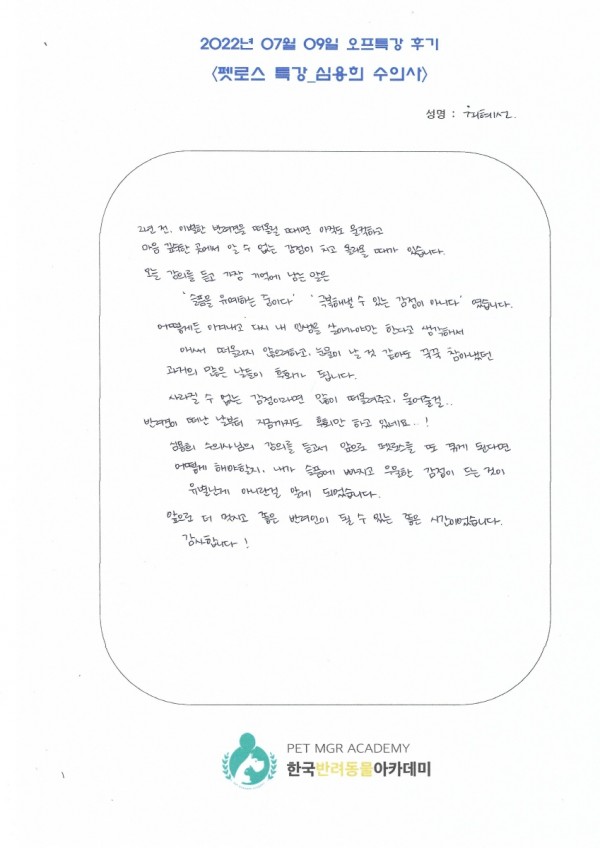 2022년 07월 09일 오프특강 후기
<펫로스 특강_심용희 수의사>
성명 :
2년 전, 이별한 반려견을 떠올릴 때면 아직도 울컥하고
마음 깊숙한 곳에서 알 수 없는 감정이 치고 올라올 때가 있습니다.
오늘 강의를 듣고 가장 기억에 남는 말은
'슬픔을 유예하는 중이다' '극복해낼 수 있는 감정이 아니다' 였습니다.
어떻게든 이겨내고 다시 내 인생을 살아가야만 한다고 생각해서
애써 떠올리지 않으려하고, 눈물이 날 것 같아도 꾹꾹 참아냈던
과거의 많은 날들이 후회가 됩니다.
사라질 수 없는 감정이라면 많이 떠올려주고, 울어줄걸..
반려견이 떠난 날부터 지금까지도 후회만 하고 있네요..!
심용희 수의사님의 강의를 듣고서 앞으로 펫로스를 또 겪게 된다면
어떻게 해야할지, 내가 슬픔에 빠지고 우울한 감정이 드는 것이
유별난게 아니란걸 알게 되었습니다.
앞으로 더 멋지고 좋은 반려인이 될 수 있는 좋은 시간이었습니다.
감사합니다!
PET MGR ACADEMY
한국반려동물아카데미